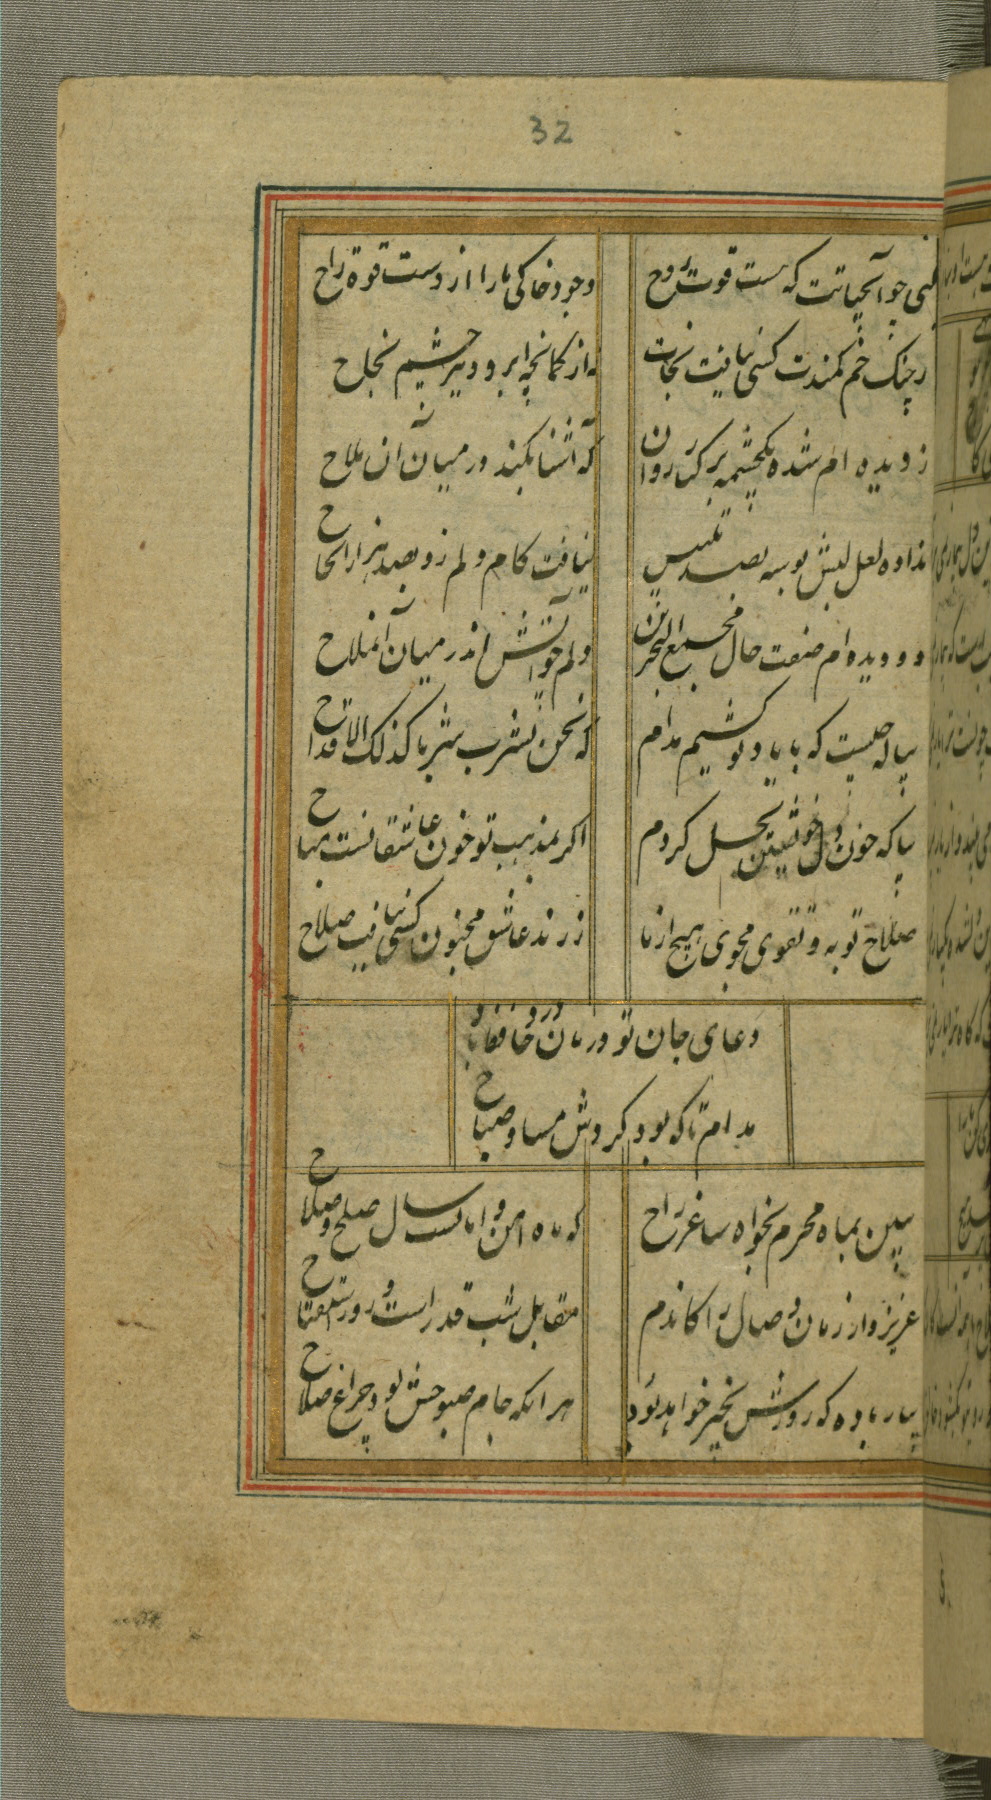 32
لبی چو آبحیاتت که هست قوت روح
وجود خاکی ما را از دست قوة راح
ز چنک خم کمندت کسی نیافت نجات
نه از کمانچه ابرو و تیر چشم نجاح
ز دیده ام شده یکچشمه بر کنار روان
که آشنا نکند در میان آن ملاح
نداده لعل لبش بوسه بصد تلبیس
نیافت کام دلم زو بصد هزار الحاح
دو دیده ام صفت حال مجمع البحرین
دلم چو آتش اندر میان آنملاح
پیاله چیست که با یاد تو کشیم مدام
که نحن نشرب شربا کذلک الاقداح
بیا که خون دل خویشتن بحل کردم
اکر بمذهب تو خون عاشقانست مباح
صلاح توبه و تقوی مجوی هیچ از ما
ز رند عاشق مجنون کسی نیافت صلاح
دعای جان تو ورد زبان حافظ باد
مدام تا که بود کردش مسا و صباح
ببین بماه محرم بخواه ساغر راح
که ماه امن و امانست سال صلح و صلاح
عزیز دار زمان وصال را کاندم
مقابل شب قدر است و روز استفتاح
بیار باده که روزش بخیر خواهد بود
هر آنکه جام صبوحش بود چراغ صلاح